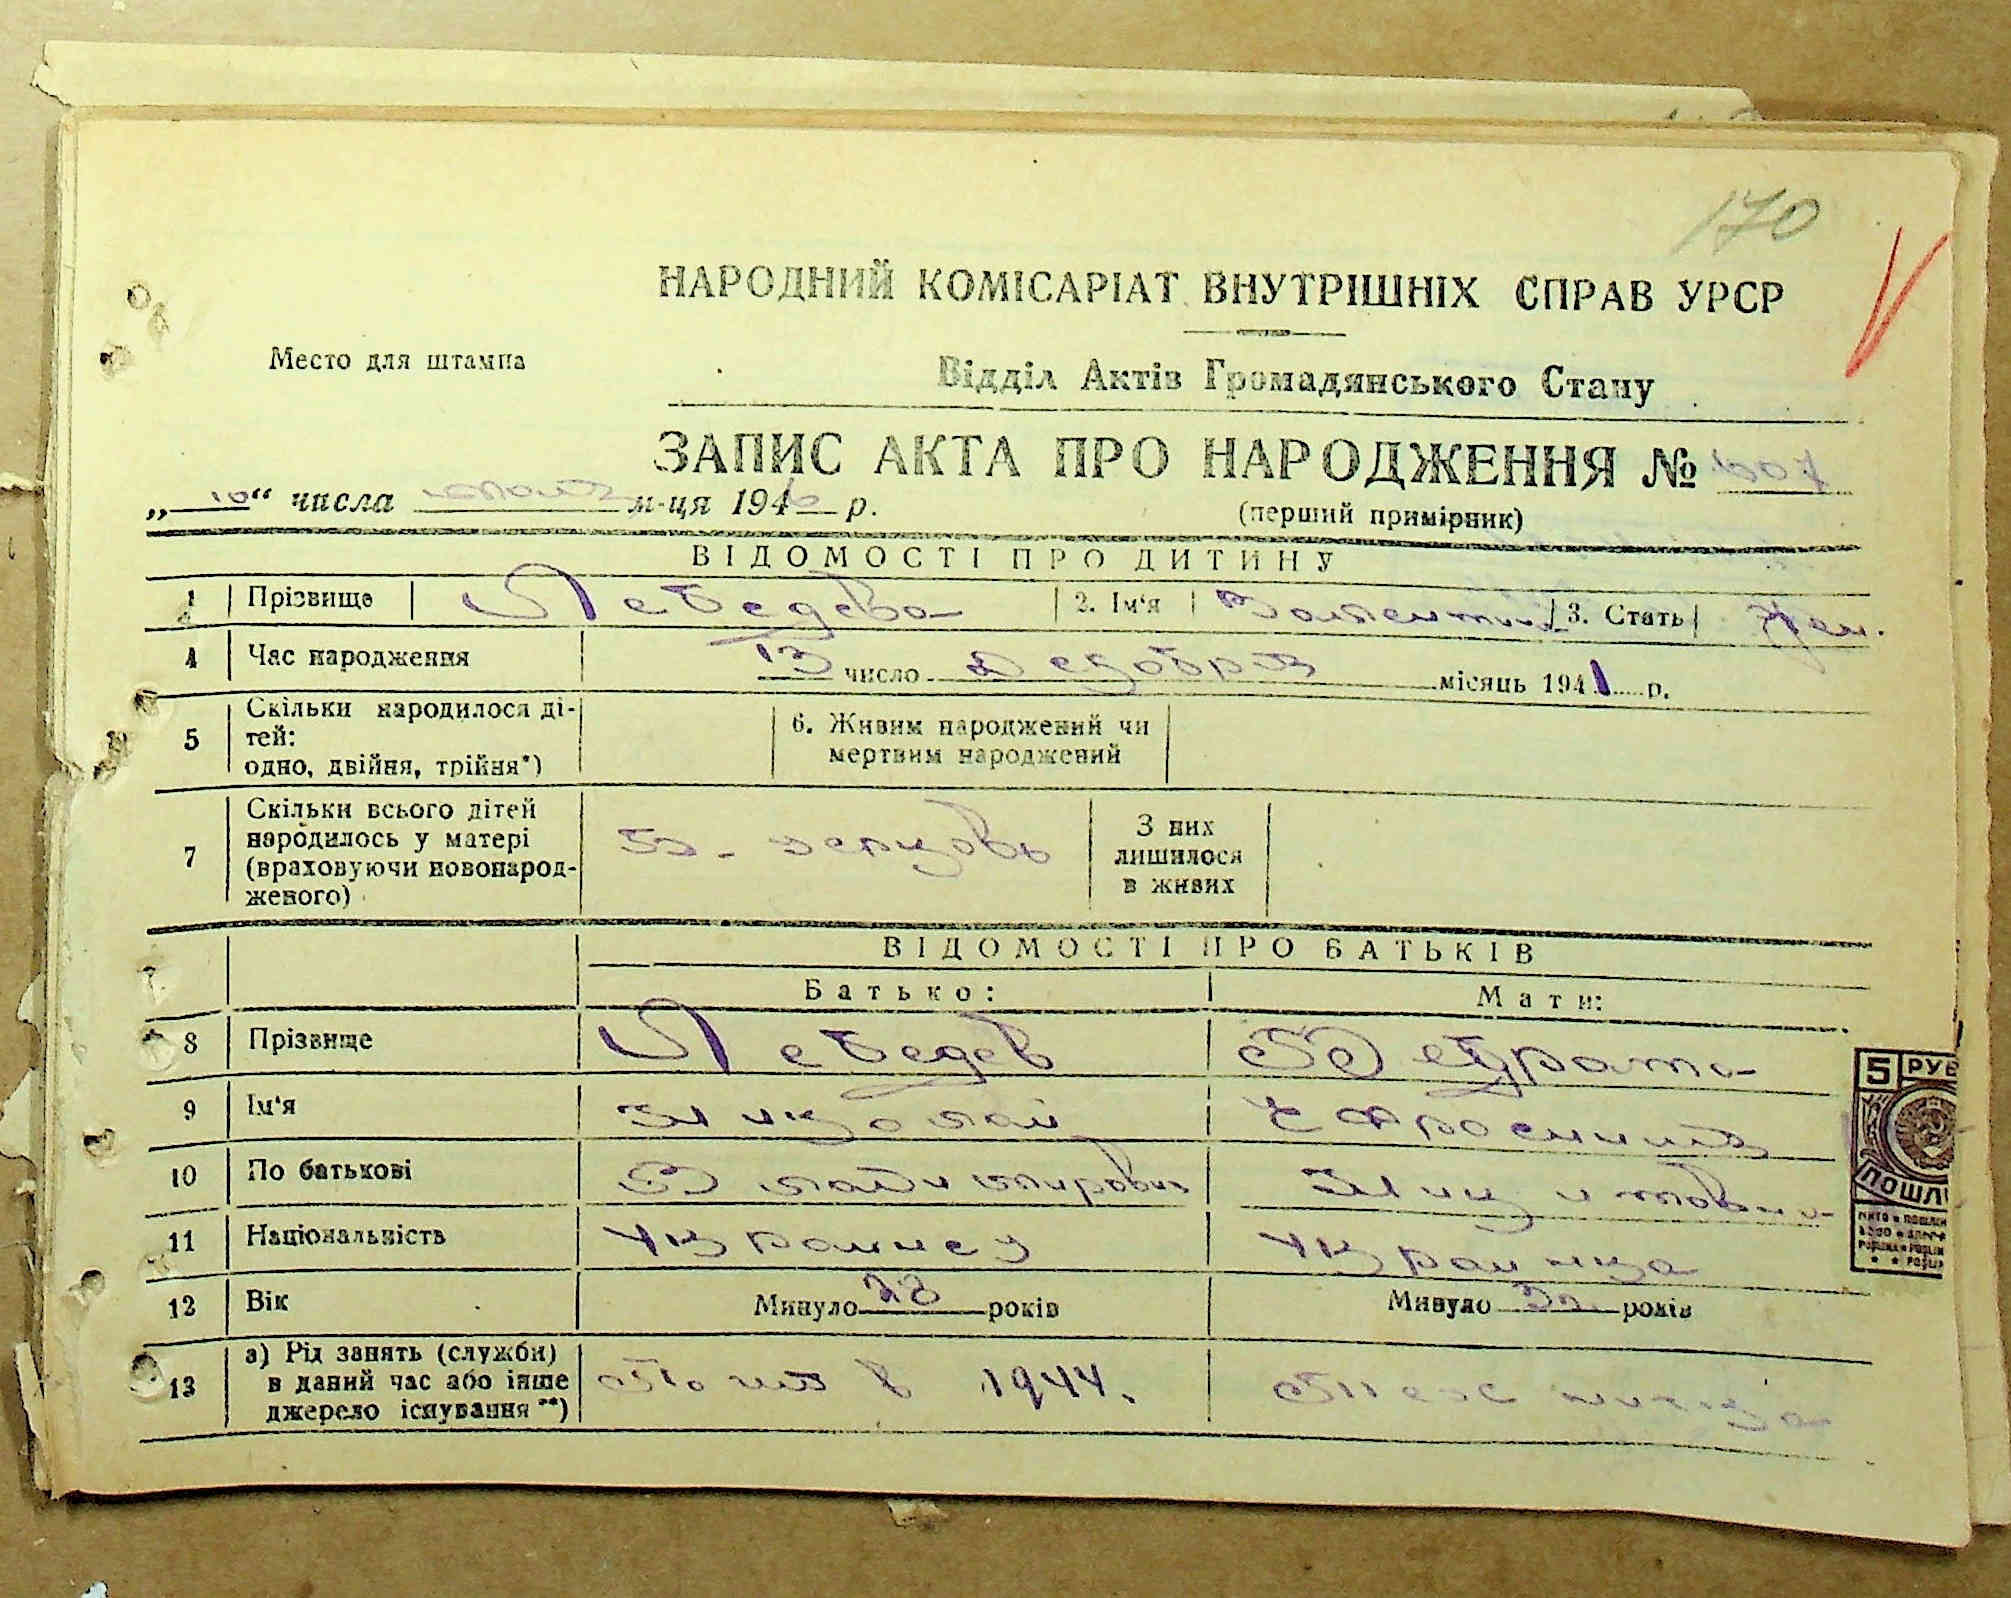 170
НАРОДНИЙ КОМІСАРІАТ ВНУТРІШНІХ СПРАВ УРСР
Место для штампа
Відділ Актів Громадянського Стану
ЗАПИС АКТА ПРО НАРОДЖЕННЯ №
„ “ числа м-ця 194 р.
(перший примірник)
ВІДОМОСТІ ПРО ДИТИНУ
1 Прізвище Лебедева 2. Ім'я 3. Стать Жен.
4 Час народження 13 число Декабря місяць 1941 р.
5 Скільки народилося ді-
тей:
одно, двійня, трійня*)
6. Живим народжений чи
мертвим народжений
7 Скільки всього дітей
народилось у матері
(враховуючи новонарод-
женого)
З них
лишилося
в живих
ВІДОМОСТІ ПРО БАТЬКІВ
Батько: Мати:
8 Прізвище Лебедев
9 Ім'я Николай Ефросиния
10 По батькові Владимирович Никитовна
11 Національність Украинец Украинка
12 Вік Минуло 28 років Минуло років
13 а) Рід занять (служби)
в даний час або інше
джерело існування **)
в 1944.
5 РУБ
ПОШЛ